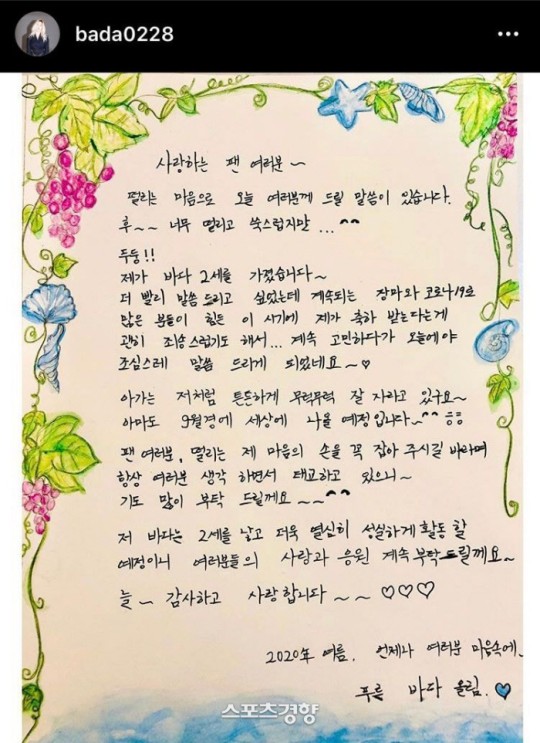 bada0228
사랑하는 팬 여러분~
떨리는 마음으로 오늘 여러분께 드릴 말씀이 있습니다.
후~~ 너무 떨리고 쑥스럽지만 ...^^
두둥!!
제가 바다 2세를 가졌습니다~
더 빨리 말씀 드리고 싶었는데 계속되는 장마와 코로나19로
많은 분들이 힘든 이 시기에 제가 축하 받는다는게
괜히 죄송스럽기도 해서... 계속 고민하다가 오늘에야
조심스레 말씀 드리게 되었네요~♡
아가는 저처럼 튼튼하게 무럭무럭 잘 자라고 있구요~
아마도 9월경에 세상에 나올 예정입니다~^^ ㅎㅎ
팬 여러분, 떨리는 제 마음의 손을 꼭 잡아 주시길 바라며
항상 여러분 생각 하면서 태교하고 있으니~
기도 많이 부탁 드릴께요 ~~^^
저 바다는 2세를 낳고 더욱 열심히 성실하게 활동 할
예정이니 여러분들의 사랑과 응원 계속 부탁드릴께요~
늘~ 감사하고 사랑합니다~~ ♡♡♡
2020年 여름. 언제나 여러분 마음속에.
푸른 바다 올림.♥
스포츠경향